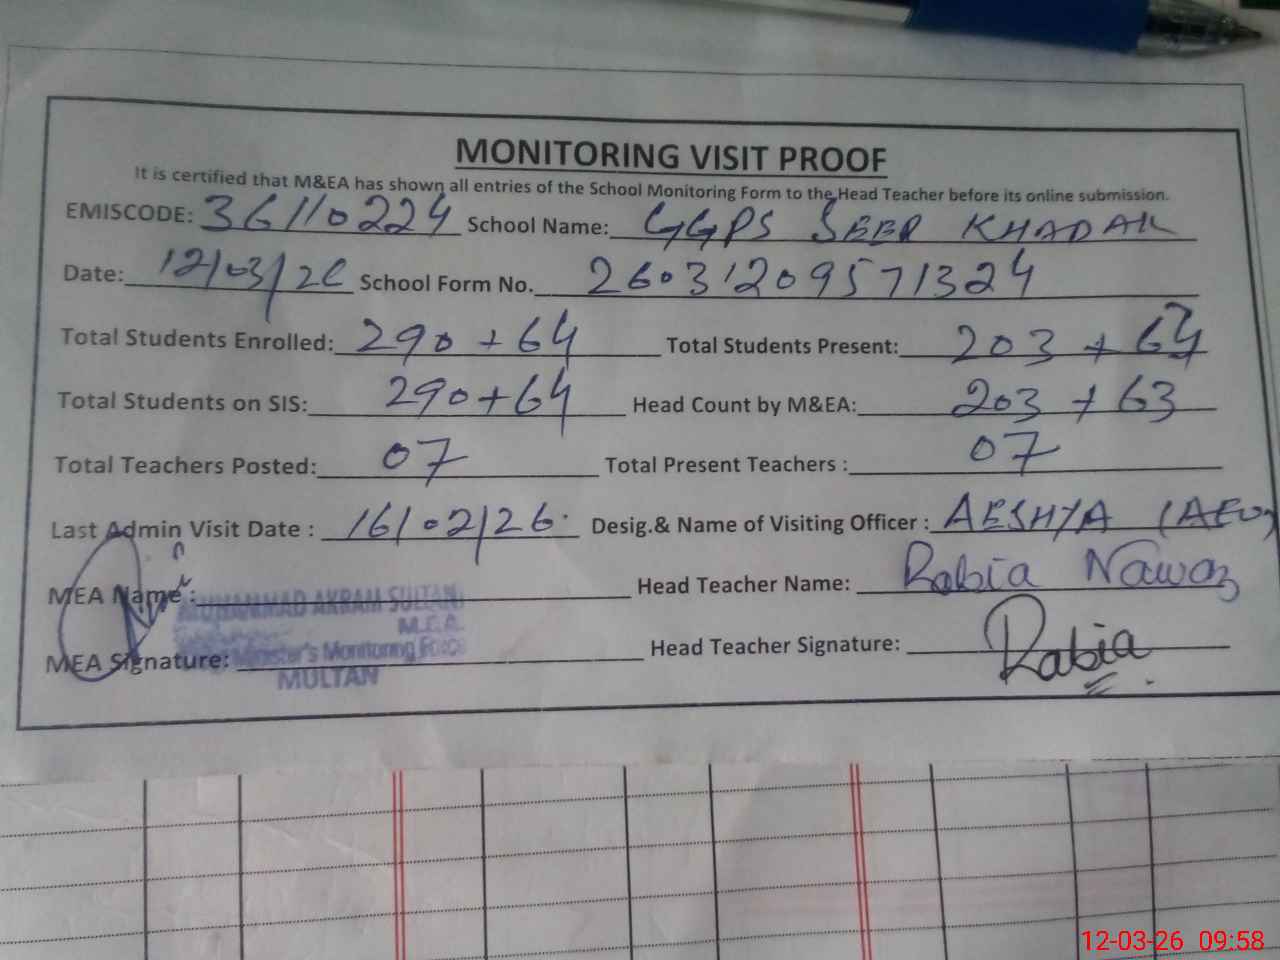 MONITORING VISIT PROOF
It is certified that M&EA has shown all entries of the School Monitoring Form to the Head Teacher before its online submission.
EMISCODE: 36110224 School Name: GGPS SEER KHADAK
Date: 12/03/26 School Form No. 26031209571324
Total Students Enrolled: 290 + 64 Total Students Present: 203 + 63
Total Students on SIS: 290+64 Head Count by M&EA: 203 + 63
Total Teachers Posted: 07 Total Present Teachers : 07
Last Admin Visit Date : 16/02/26 Desig.& Name of Visiting Officer : AESHYA (AEO)
MEA Name : Head Teacher Name: Rabia Nawaz
MUHAMMAD AKRAM SULTANI
M.E.A.
MEA Signature: Minister's Monitoring Force Head Teacher Signature: Rabia
MULTAN
12-03-26 09:58